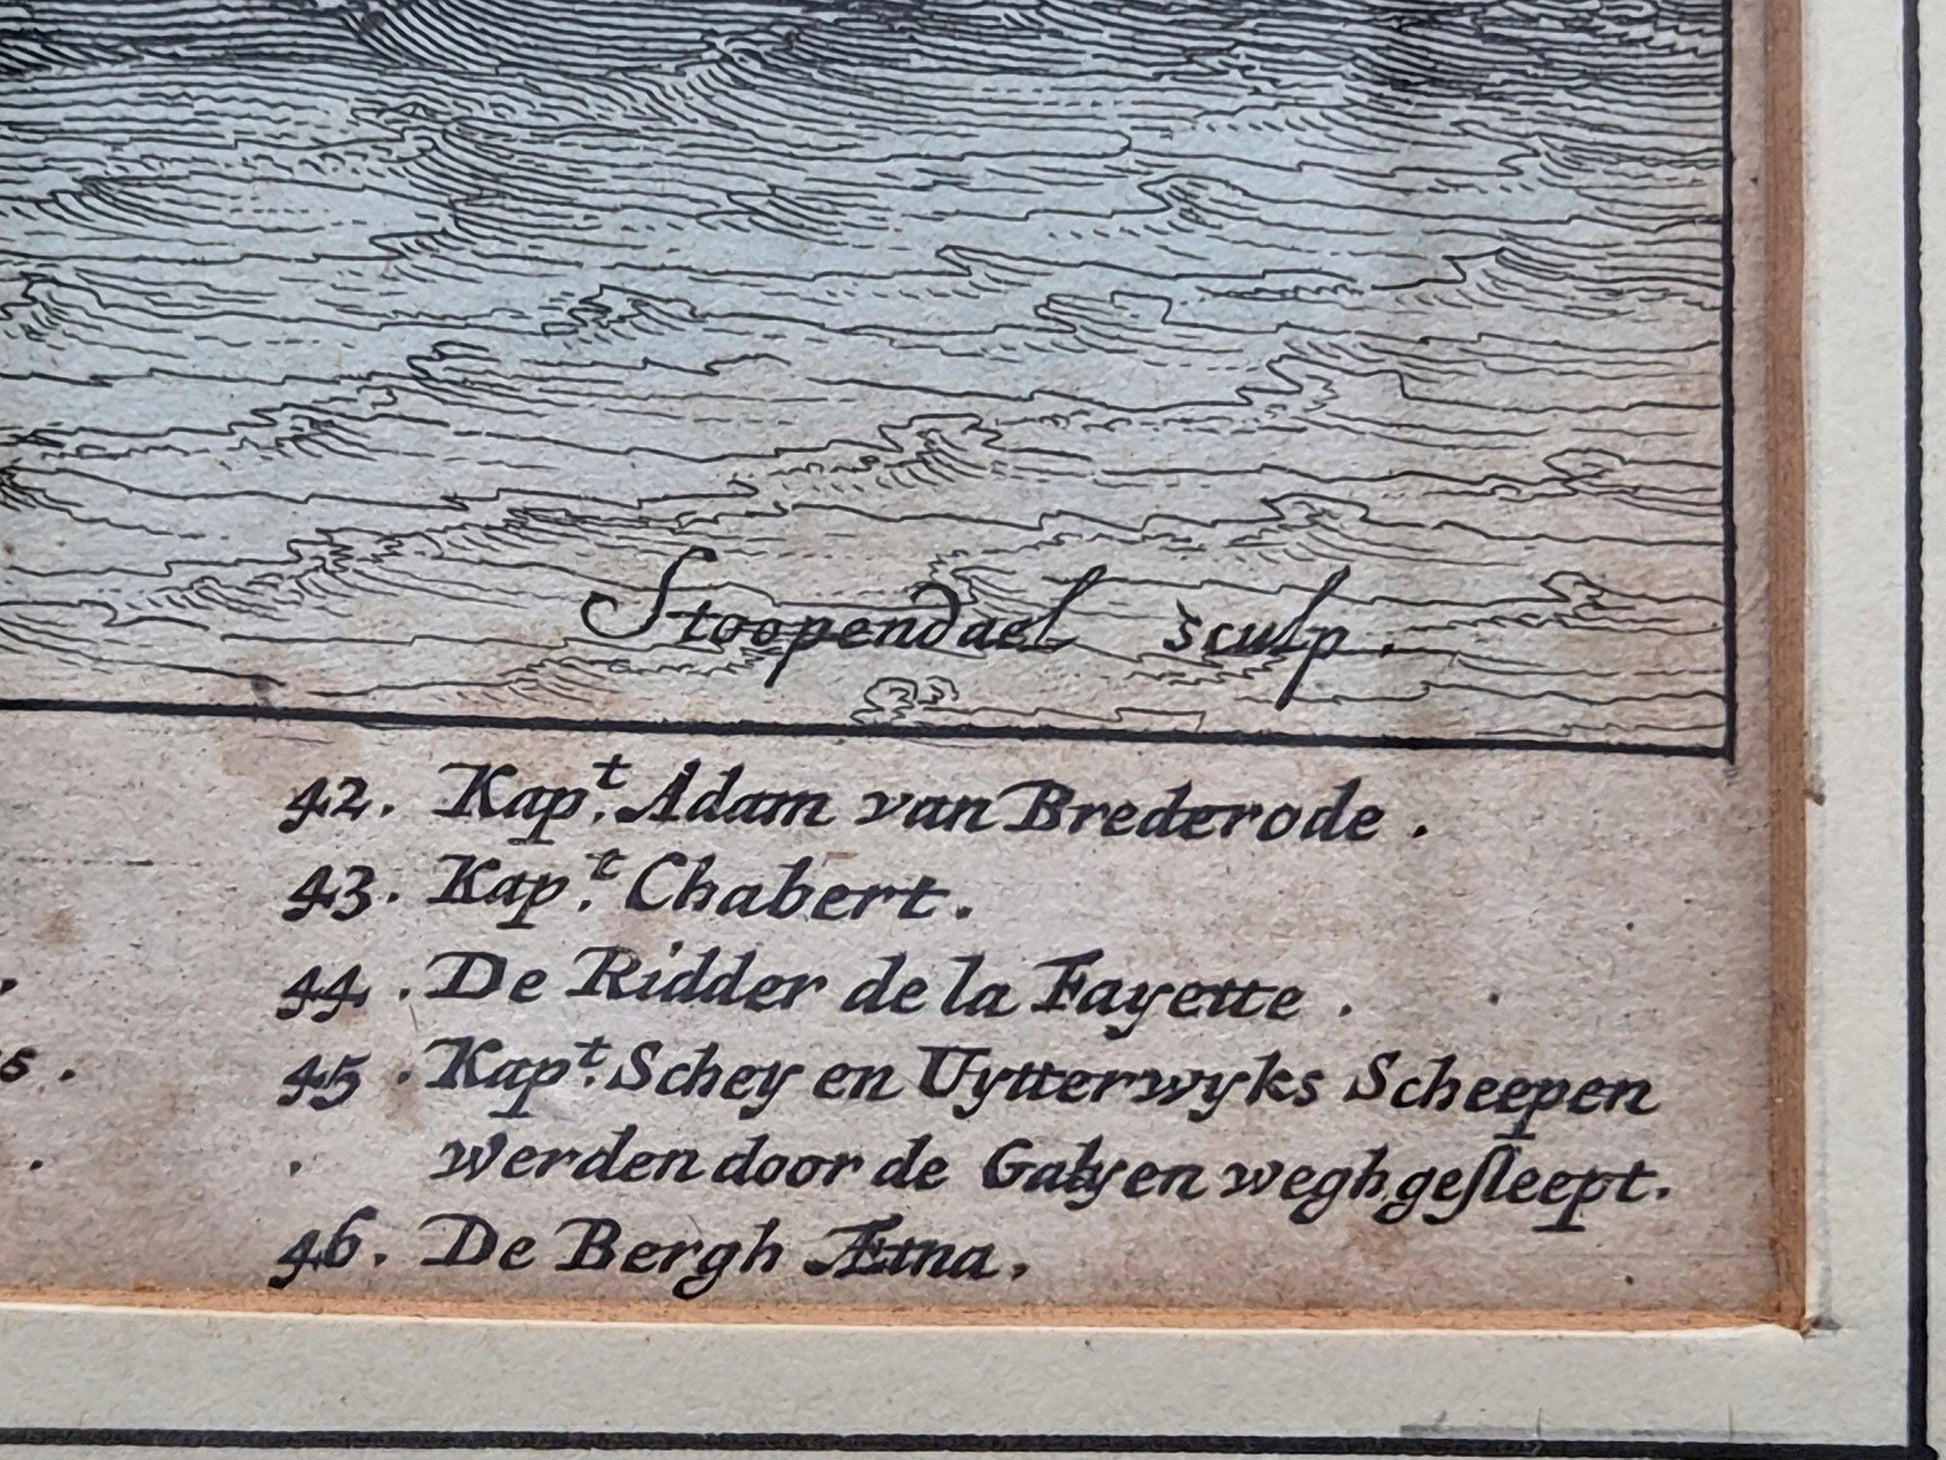 Stoopendael sculp.
42. Kapt. Adam van Brederode.
43. Kapt. Chabert.
44. De Ridder de la Fayette.
45. Kapt. Schey en Uytterwyks Scheepen
s.
werden door de Galyen wegh geſleept.
46. De Bergh Ætna.